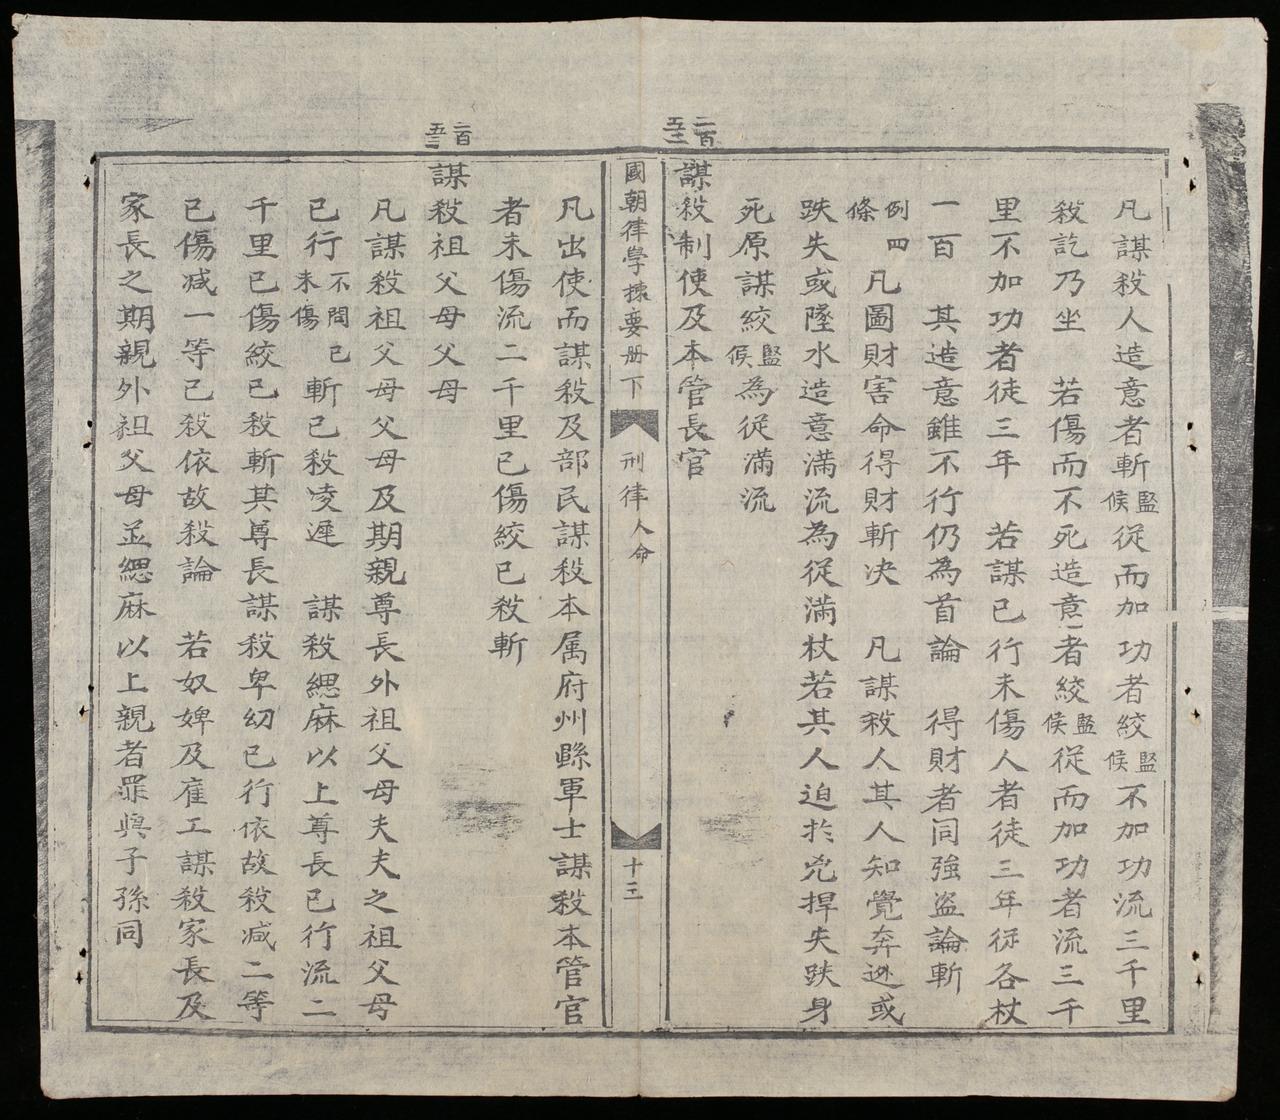 凡謀殺人造意者斬監候從而加功者絞監候不加功流三千里
殺訖乃坐　若傷而不死造意者絞監候從而加功者流三千
里不加功者徒三年　若謀已行未傷人者徒三年從各杖
一百　其造意雖不行仍為首論　得財者同強盗論斬
例四條　凡圖財害命得財斬决　凡謀殺人其人知覺奔逊或
跌失或墜水造意滿流為從滿杖若其人迫於兇捍失跌身
死原謀絞監候為從滿流
二百五十二
謀殺制使及本管長官
國朝律學揀要册下　刑律人命　十三
凡出使而謀殺及部民謀殺本属府州縣軍士謀殺本管官
者未傷流二千里已傷絞已殺斬
二百五十三
謀殺祖父母父母
凡謀殺祖父母父母及期親尊長外祖父母夫夫之祖父母
已行不問已未傷斬已殺凌遲　謀殺緦麻以上尊長已行流二
千里已傷絞已殺斬其尊長謀殺卑幼已行依故殺减二等
已傷减一等已殺依故殺論　若奴婢及雇工謀殺家長及
家長之期親外祖父母並緦麻以上親者罪與子孫同